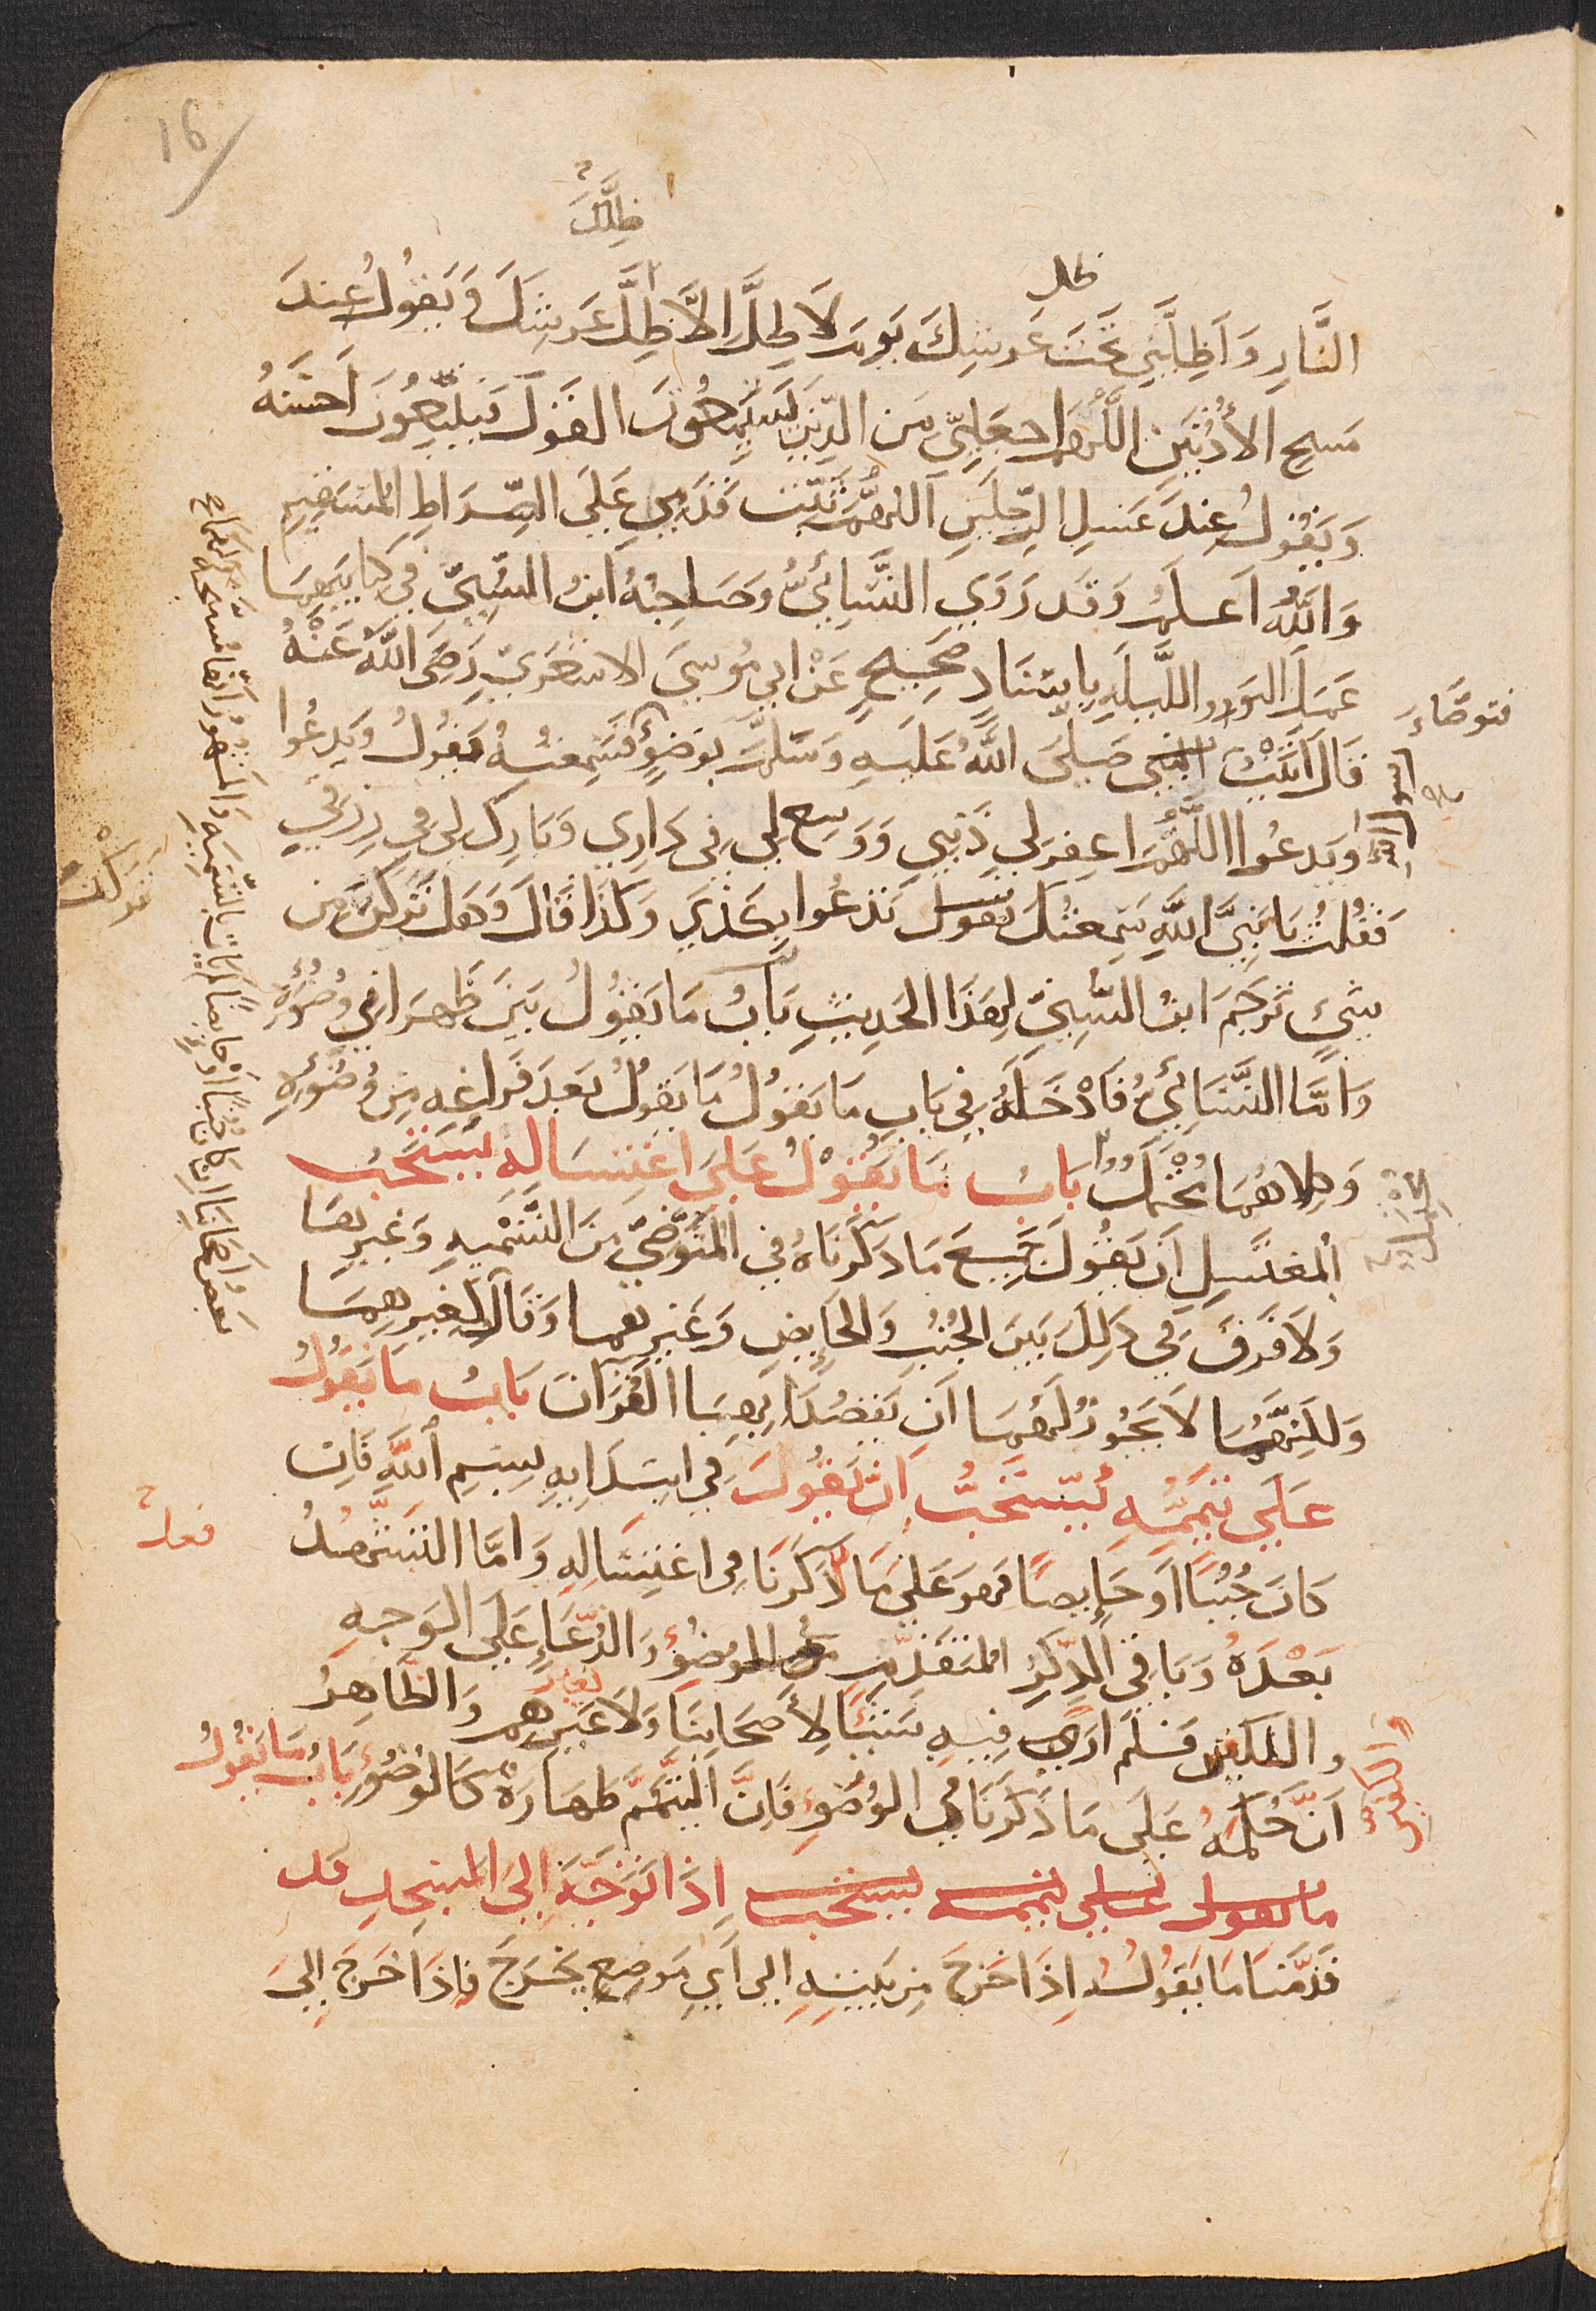 16
ظلك
ظل
النَّارِ وَأَظِلَّنِي تَحْتَ عَرشِكَ يَومَ لَا ظِلَّ الَّا ظِلَّ عَرشِكَ وَيَقُولُ عِندَ
مَسحِ الأُذُنَينِ اللَّهُمَّ اجعَلنِي مِن الَّذِينَ يَستَمِعُونَ القَولَ فَيَتَّبِعُونَ اَحسَنَهُ
وَيَقُولُ عِندَ غَسلِ الرِّجلَينِ اَللهُمَّ ثَبِّت قَدَمِي عَلَى الصِّرَاطِ المُستَقِيمِ
وَاللَّهُ اَعلَمُ وَقَد رَوَي النَّسَائيُّ وَصَاحِبُهُ ابنُ السُّنِيِّ فِي كِتَابَيهِمَا
عَمَل اليَومِ واللَّيلَةِ بِاِسنَادٍ صَحِيحٍ عَنْ ابِي مُوسَي الاشعَرِيّ رَضِيَ اللَّهُ عَنْهُ
قَالَ اَتَيْتُ النبي صَلَّي اللَّهُ عَلَيهِ وَسَلَّمَ بِوَضُوءٍ فَسَمِعتُهُ يَقُولُ وَيَدعُوا
وَيَدعُوا اللَّهُمَّ اغفِر لِي ذَنبِي وَوَسِع لِي فِي دَارِي وَبَارِك لِي فِي رِزقِي
فَقُلتُ يَا نَبِيَّ اللَّهِ سَمِعتُكَ تقول تَدعُوا بِكَذَي وَكَذَا قَالَ وَهَل تَرَكنَ مِن
شَيءٍ تَرجَمَ ابنُ السُّنِيّ لِهَذَا الحَدِيثِ بَابُ مَا يَقُولُ بَينَ ظَهرَانِي وُضُوءِهِ
وَاَمَّا النَّسَائِيُّ فَاَدْخَلَهُ فِي بَابِ مَا يَقُولُ مَا يَقُولُ بَعدَ فَرَاغِهِ مِن وُضُوئِهِ
وَكِلَاهُمَا مُحتَمَلٌ بَابُ مَا يَقُولُ عَلَى اغتِسَالِهِ يُستَحَبُ
لِلمغتَسِلِ اَن يَقُولَ جَمِيعَ مَا ذَكَرنَاهُ فِي المُتَوَضِّي مِنَ التَّسمِيهِ وَغَيرِهَا
وَلَا فَرقَ فِي ذَلِكَ بَينَ الجُنُبِ وَالحَايِضِ وَغَيرِهِمَا وَقَالَ لِغَيرِهِمَا
وَلَكِنَّهُمَا لَا يَجُوزُ لَهُمَا اَن يَقصُدَا بِهَا القُرآنَ بَابُ مَا يَقُولُ
عَلَى تَيَمُّمِهِ يُستَحَبُّ اَنْ يَقُولَ فِي ابتِدَايِهِ بِسمِ اللَّهِ فَاِن
كَانَ جُنُبًا اَو حَايِضًا فَهوَ عَلَى مَا ذَكَرنَا فِي اغتِسَالِهِ وَاَمَّا التَشَهُّدُ
بَعدَهُ وَبَاقِي الذِّكرِ المُتَقَدِّمِ في الوضُوءِ وَالدُّعَاءِ عَلَى الوَجهِ
والكفين فَلَم اَرَي فِيهِ شَيئًا لِأَصحَابِنَا وَلَا غَيرِهِم وَالظَّاهِرُ
اَنَّ حُكمَهُ عَلَى مَا ذَكَرنَا فِي الوُضُوءِ فَاِنَّ التَّيَمُّمَ طَهَارَةٌ كَالوُضُوءِ بَابُ مَا يَقُولُ
ما يقول علي تيممه يستحب اِذَا تَوَجَّهَ اِلَى المَسجِدِ قد
قَدَّمنَا مَا يَقُولُهُ اِذَا خَرَجَ مِن بَيتِهِ اِلَي اَيِ مَوضِعٍ يَخرَجَ فَاِذَا خَرَجَ اِلَى
فتوضاء
رسول الله
تركت
محتمل
فعل
والكفين